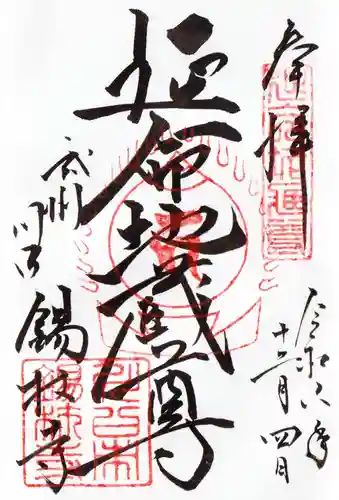 奉拝
令和六年
十二月四日
延命地蔵尊
武州
川口
錫杖寺